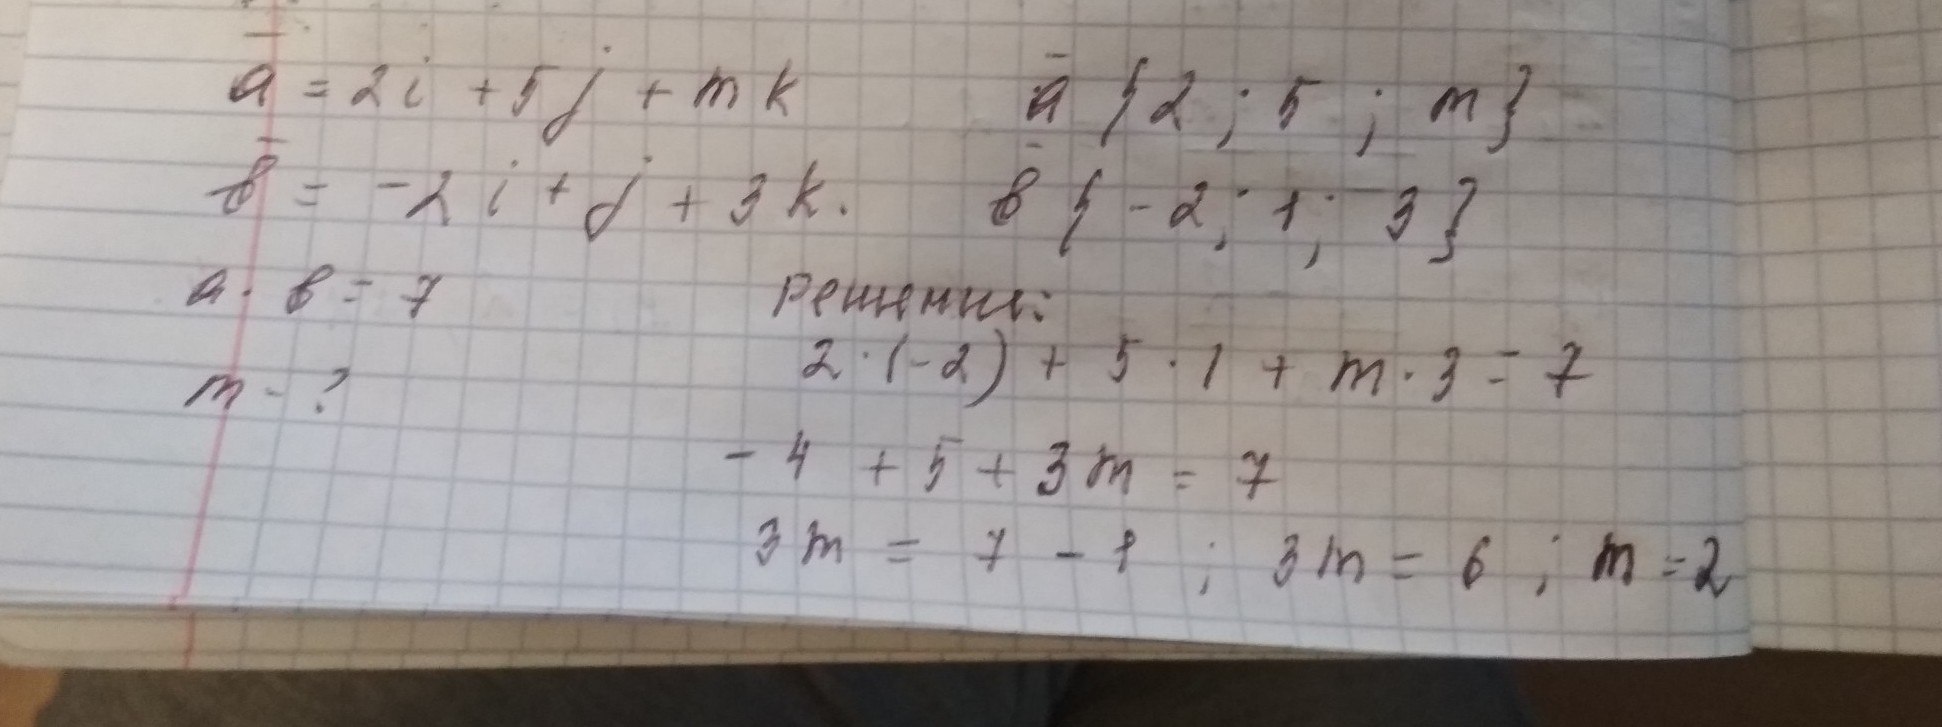 a̅ = 2i + 5j + mk   a̅ {2; 5; m}
b̅ = -2i + j + 3k.   b̅ {-2; 1; 3}
a · b = 7   Решение:
2·(-2) + 5·1 + m·3 = 7
m - ?
-4 + 5 + 3m = 7
3m = 7 - 1; 3m = 6; m = 2